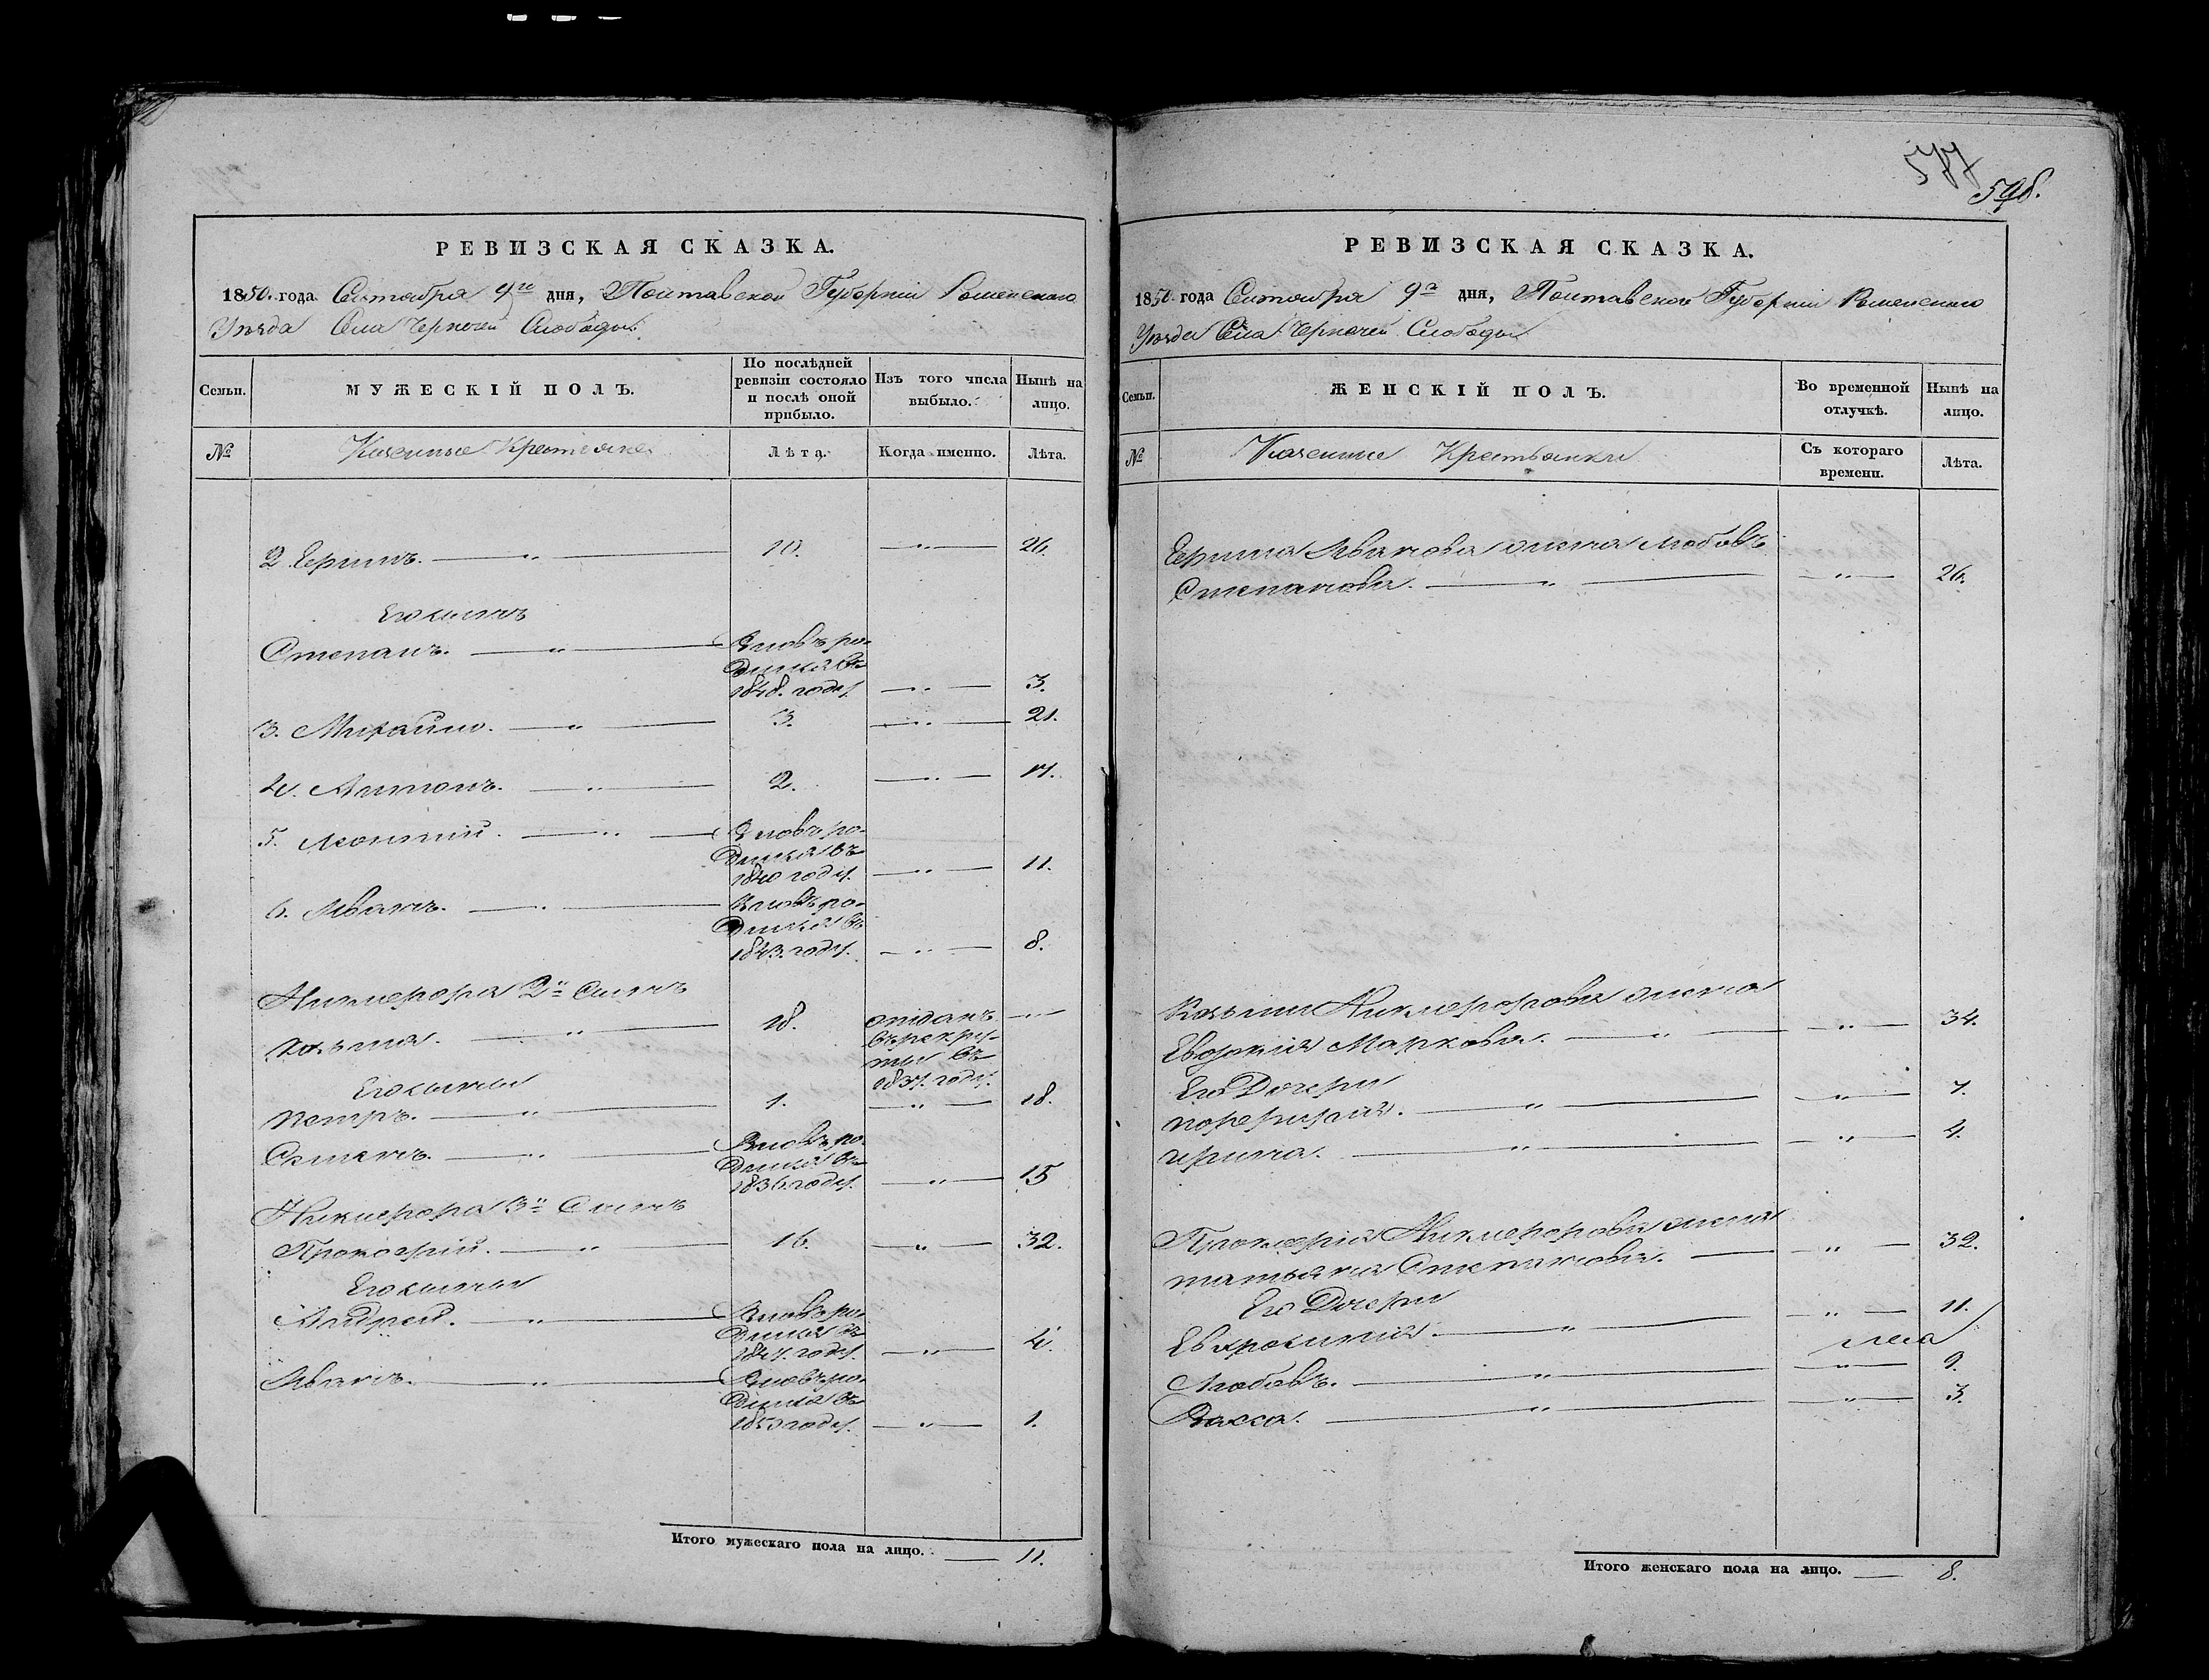 РЕВИЗСКАЯ СКАЗКА.
1850. года Сентября 9го дня, Полтавской Губерніи Роменскаго
Уѣзда Села Чернечей Слободы.
Семьи.
МУЖЕСКІЙ ПОЛЪ.
По послѣдней
ревизіи состояло
и послѣ оной
прибыло.
Изъ того числа
выбыло.
Нынѣ на
лицо.
№
Казенные Крестьяне.
Лѣта.
Когда именно.
Лѣта.
2. Ермилъ. — " — 10. — " — 26.
Его сынъ
Степанъ. — " — Вновь ро-
дился въ
1848. году. — " — 3.
3. Михайло. — " — 3. — " — 21.
4. Антонъ. — " — 2. — " — 17.
5. Леонтій. — " — Вновь ро-
дился въ
1840 году. — " — 11.
6. Иванъ. — " — Вновь ро-
дился въ
1843. году. — " — 8.
Никифора 2й Сынъ
Козьма. — " — 18. отданъ — " —
въ рекру-
ты въ
1837. году.
Его сыны
Петръ. — " — 1. — " — 18.
Семенъ. — " — Вновь ро-
дился въ
1836 году. — " — 15
Никифора 3й Сынъ
Прокофій. — " — 16. — " — 32.
Его сыны
Андрей. — " — Вновь ро-
дился въ
1847. году. — " — 4.
Иванъ. — " — Вновь ро-
дился въ
1850 году. — " — 1.
Итого мужескаго пола на лицо. — 11.
577
596.
РЕВИЗСКАЯ СКАЗКА.
1850. года Сентября 9го дня, Полтавской Губерніи Роменскаго
Уѣзда Села Чернечей Слободы
Семьи.
ЖЕНСКІЙ ПОЛЪ.
Во временной
отлучкѣ.
Нынѣ на
лицо.
№
Казенные Крестьянки
Съ котораго
времени.
Лѣта.
Ермила Иванова жена Любовь
Степанова. — " — — " — 26.
Козьмы Никифорова жена
Евфимія Маркова. — " — — " — 34.
Его Дочери
Порфирія. — " — — " — 7.
Ирина. — " — — " — 4.
Прокофія Никифорова жена
Татьяна Степанова. — — " — 32.
Его Дочери
Евфросинія. — " — — " — 11.
Любовь. — " — — " — 9.
Васса. — " — — " — 3.
Итого женскаго пола на лицо. — 8.